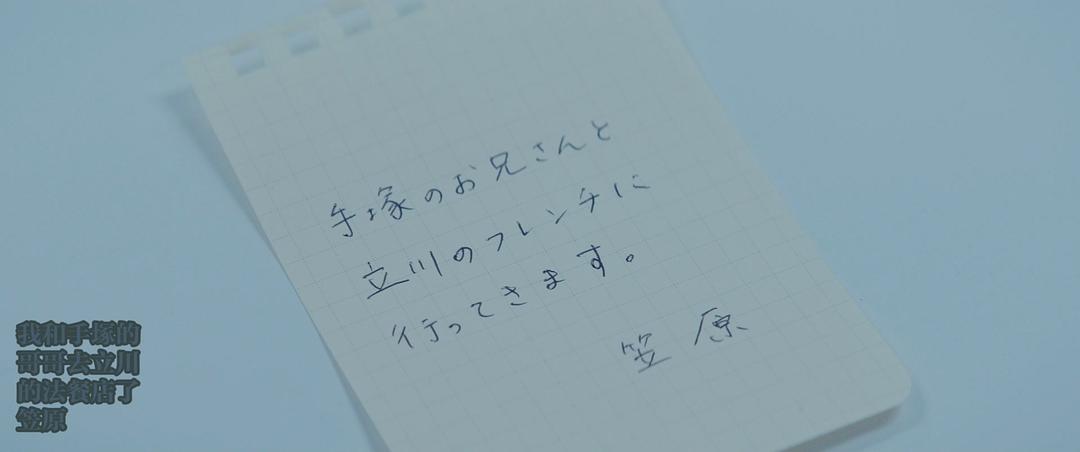 手塚のお兄さんと
立川のフレンチに
行ってきます。
笠原
我和手塚的
哥哥去立川
的法餐店了
笠原